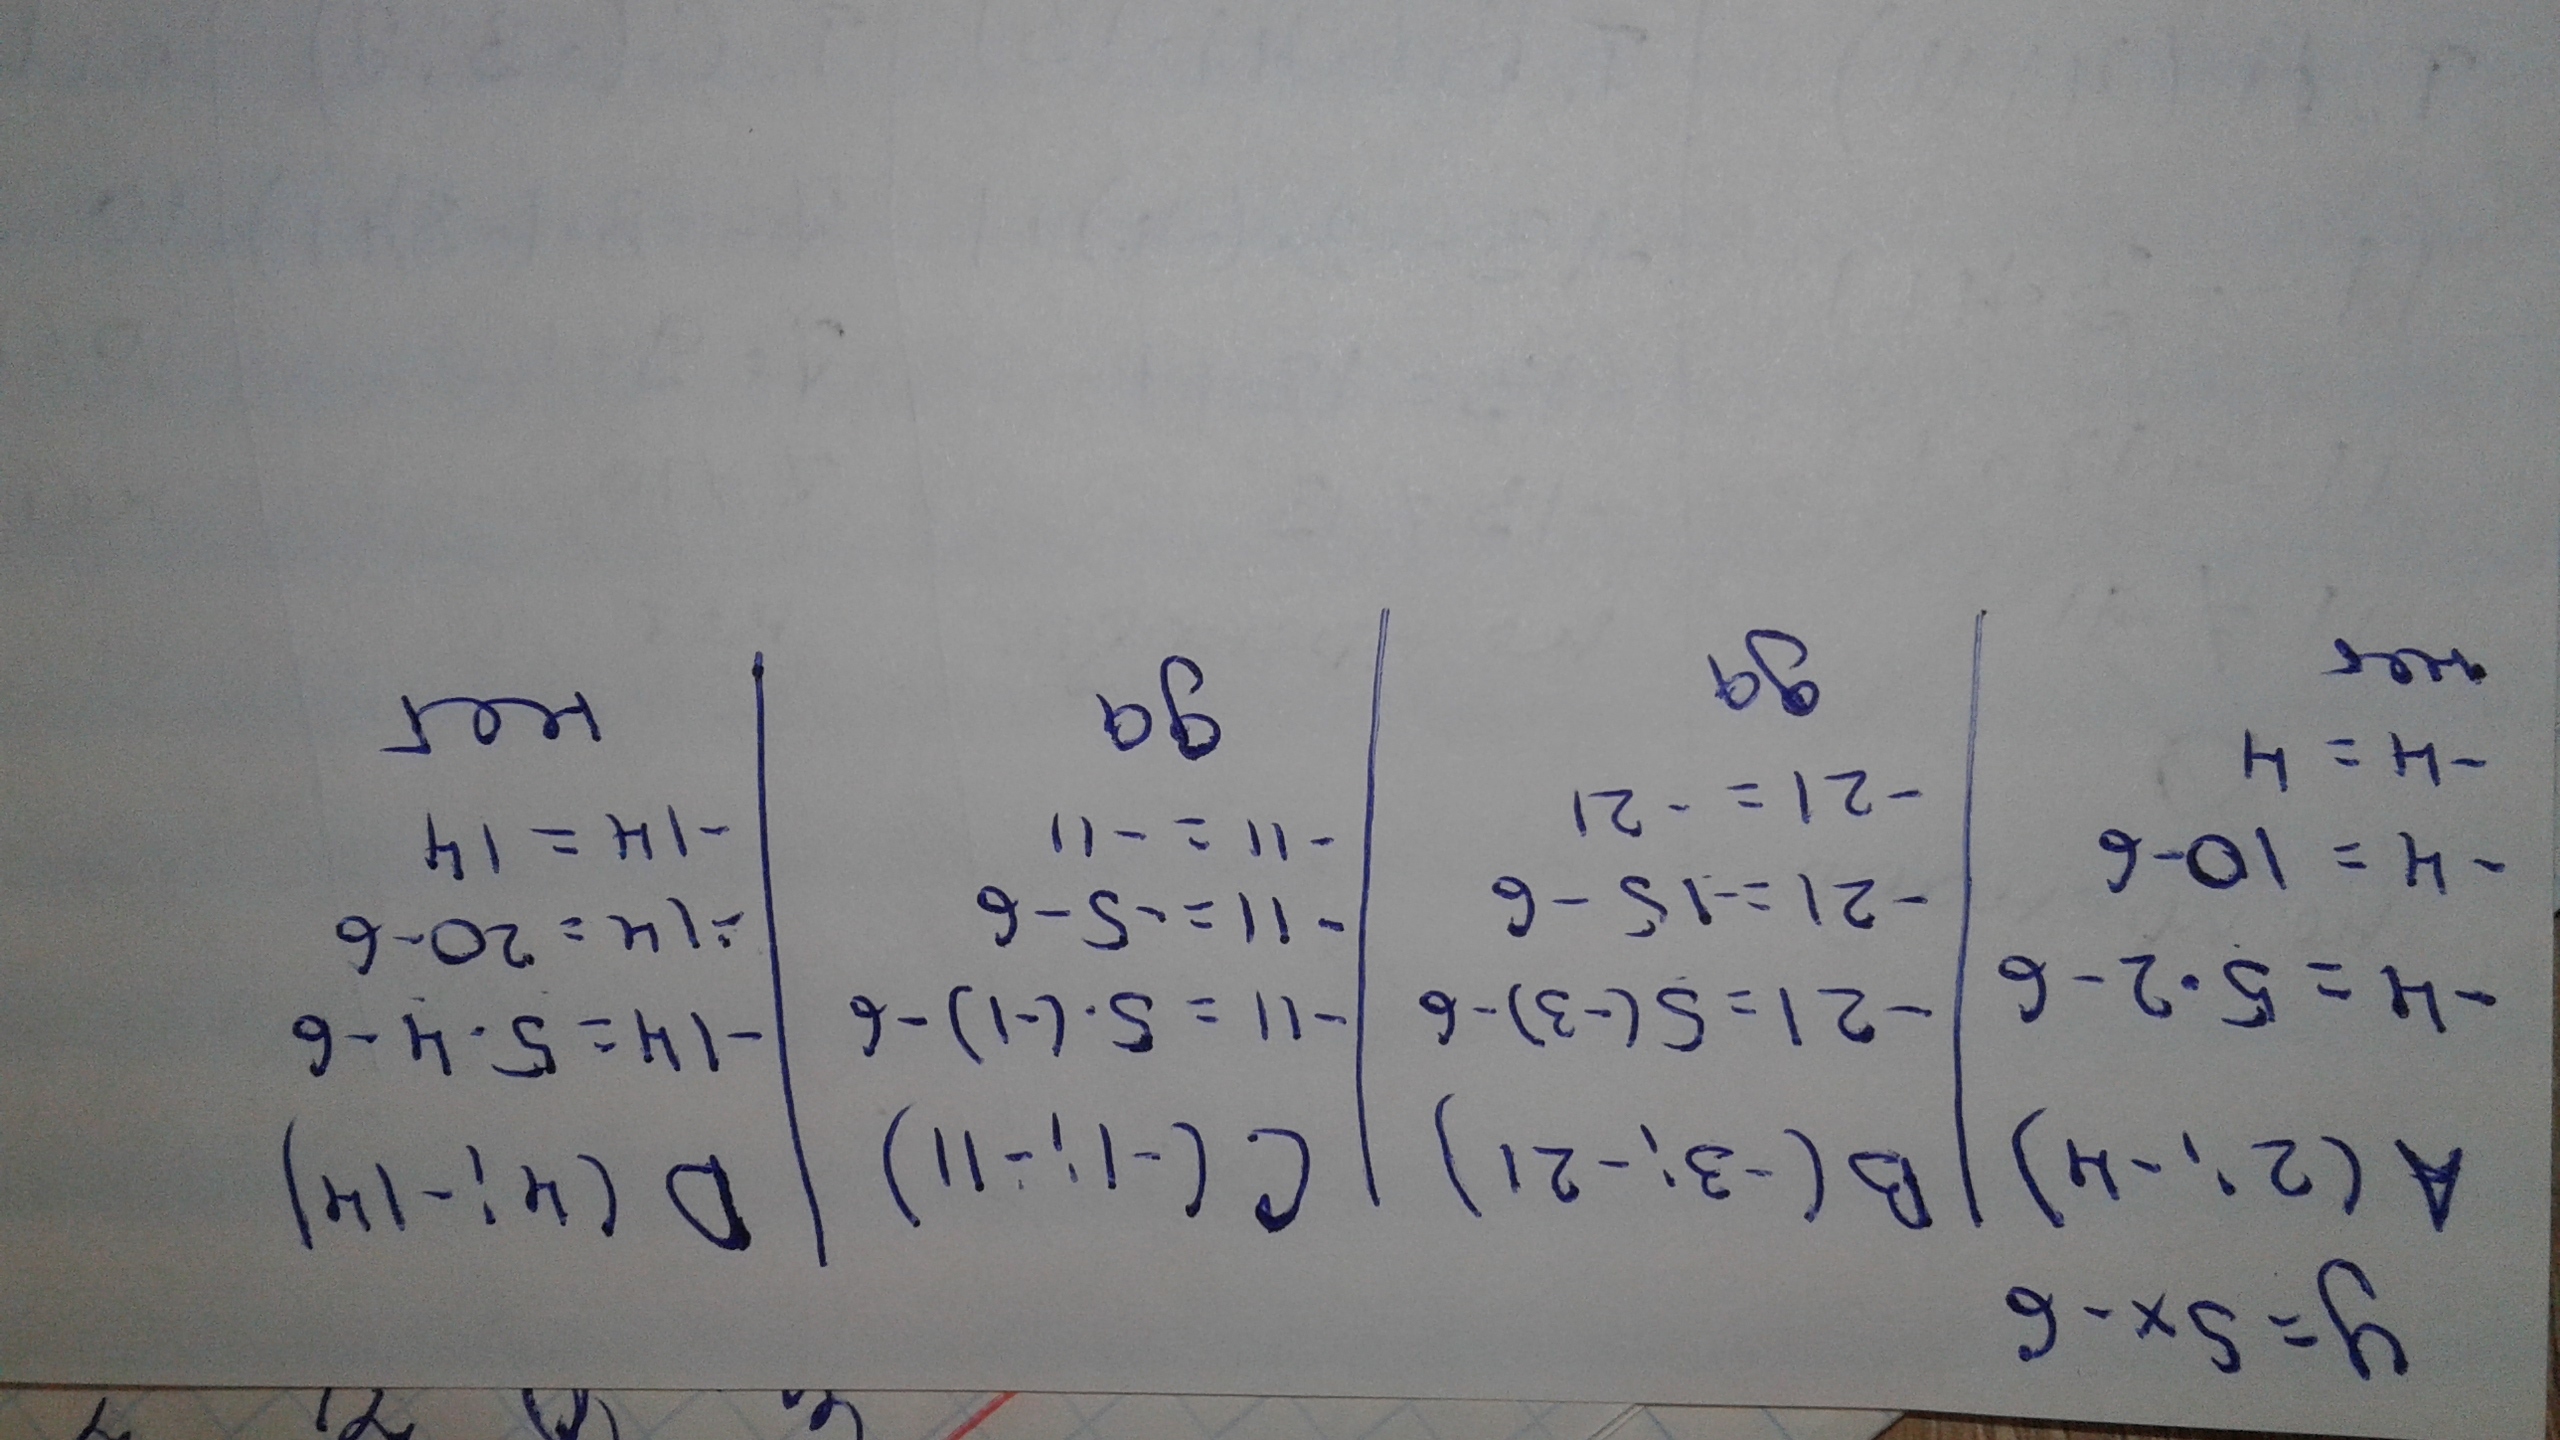 y=5x-6
A (2; -4)
-4 = 5·2-6
-4 = 10-6
-4 = 4
нет
B (-3; -21)
-21=5(-3)-6
-21=-15-6
-21=-21
да
C (-1; -11)
-11=5·(-1)-6
-11=-5-6
-11=-11
да
D (4; -14)
-14=5·4-6
-14=20-6
-14=14
нет